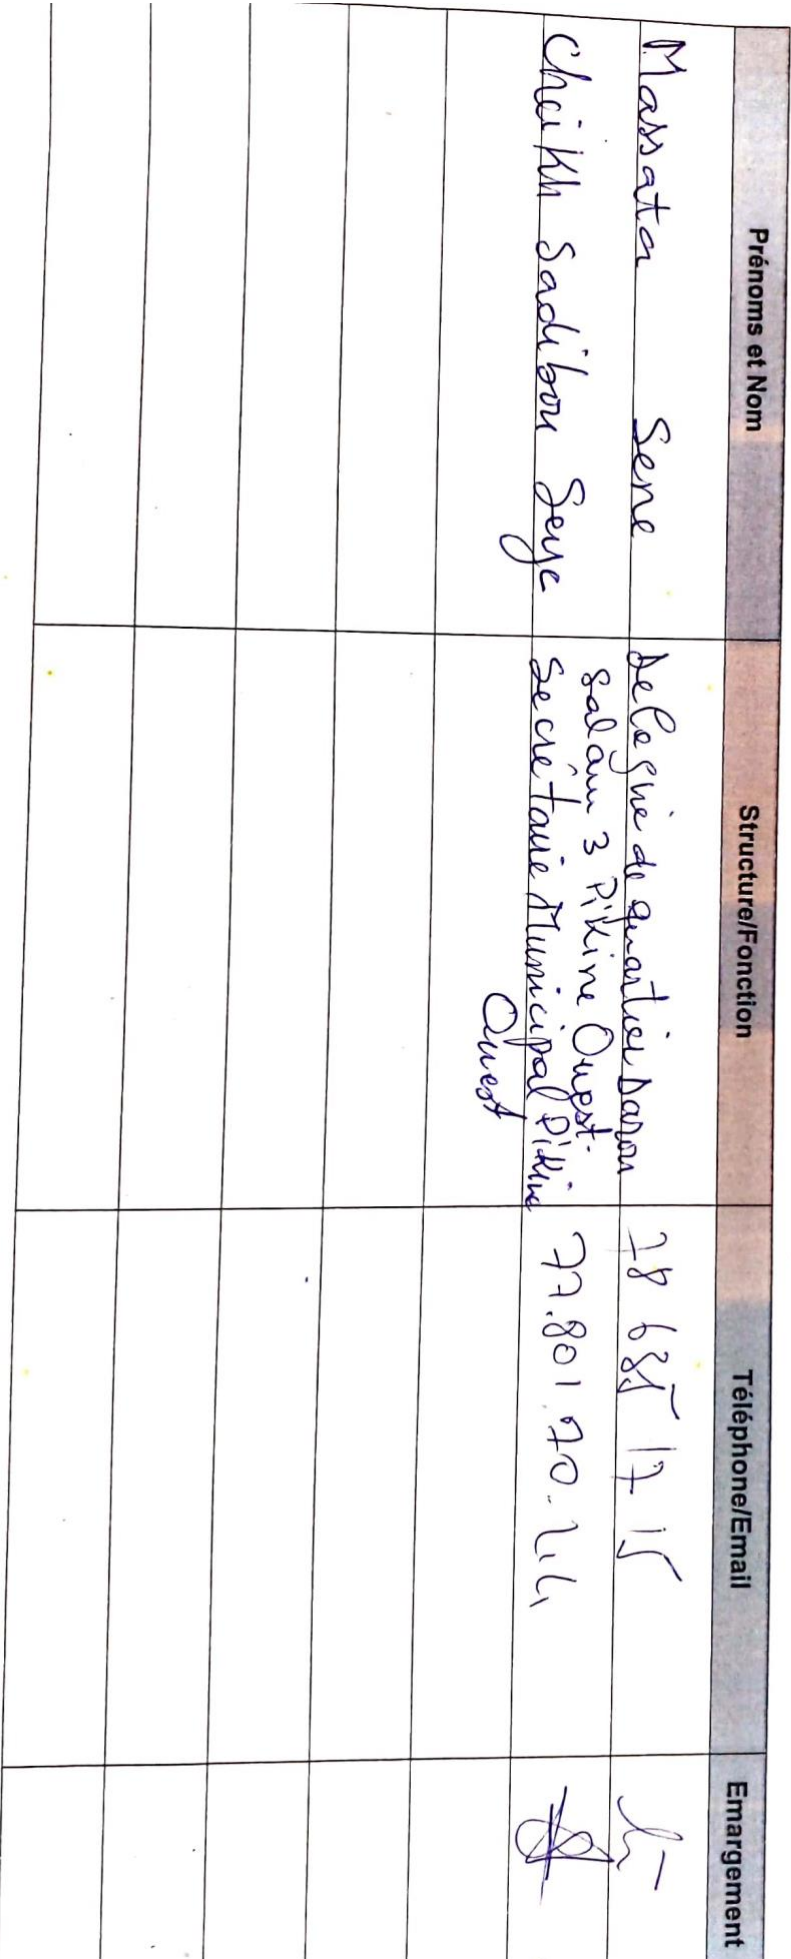 Prénoms et Nom Structure/Fonction Téléphone/Email Emargement
Massata Sene Delegué de quartier Darou 78 685 17 15
Salam 3 Pikine Ouest.
Cheikh Sadibou Seye Secrétaire Municipal Pikine 77.801.70.44
Ouest